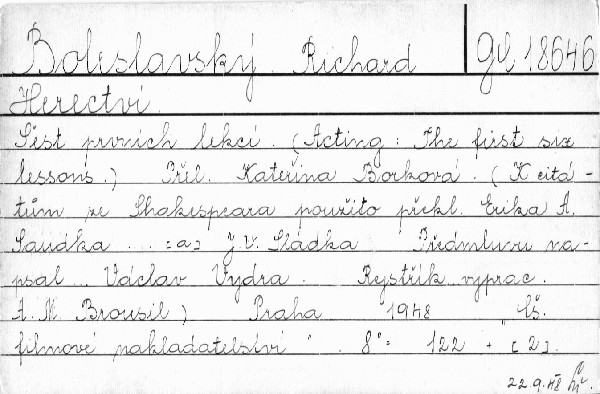 Boleslavský Richard gd 18646
Herectví.
Šest prvních lekcí. (Acting: The first six
lessons.) Přel. Kateřina Borková. (K citá-
tům ze Shakespeara použito překl. Erika A.
Saudka ... =a= J. V. Sládka Předmluvu na-
psal .. Václav Vydra. Rejstřík vyprac.
A. M. Brousil) Praha 1948 "Čs.
filmové nakladatelství". 8°= 122 + [2].
22.9.48